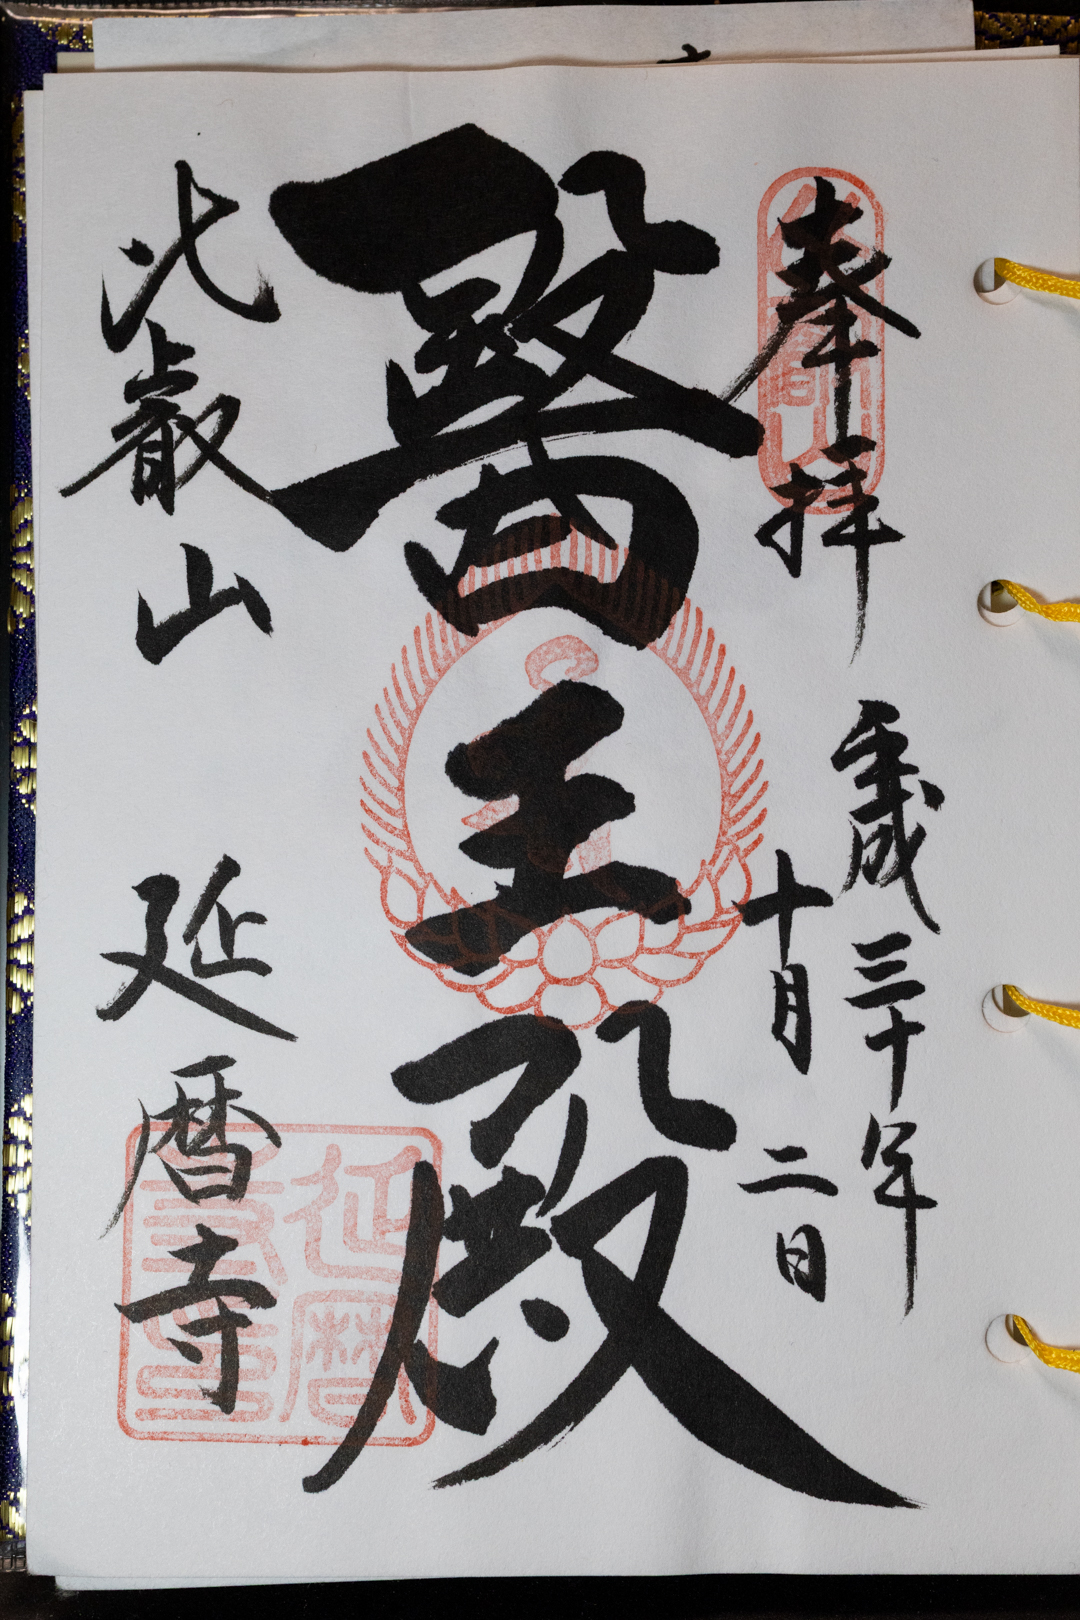 奉拝
平成三十年
十月二日
醫王殿
比叡山
延暦寺
延暦